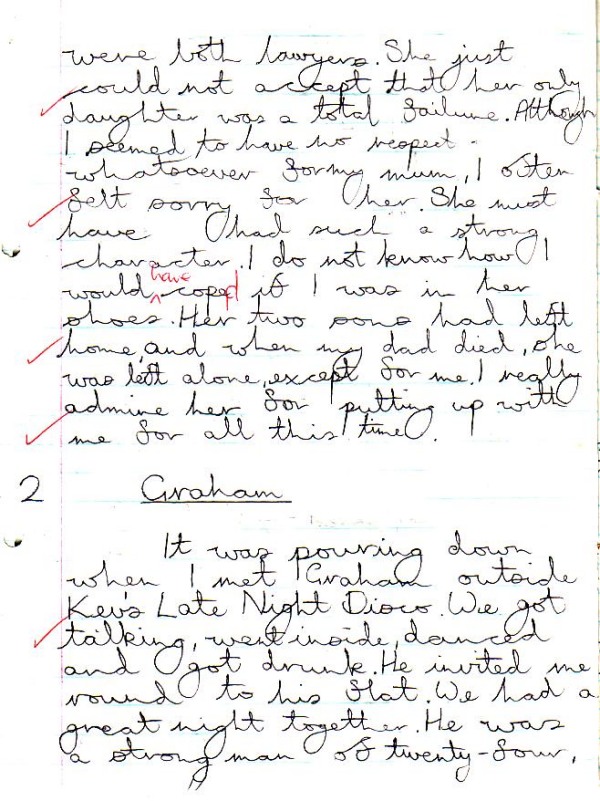 were both lawyers. She just
could not accept that her only
daughter was a total failure. Although
I seemed to have no respect
whatsoever for my mum, I often
felt sorry for her. She must
have had such a strong
character. I do not know how I
have
would ^ coped if I was in her
shoes. Her two sons had left
home, and when my dad died, she
was left alone, except for me. I really
admire her for putting up with
me for all this time.
2 Graham
It was pouring down
when I met Graham outside
Kev's Late Night Disco. We got
talking, went inside, danced
and got drunk. He invited me
round to his flat. We had a
great night together. He was
a strong man of twenty-four,